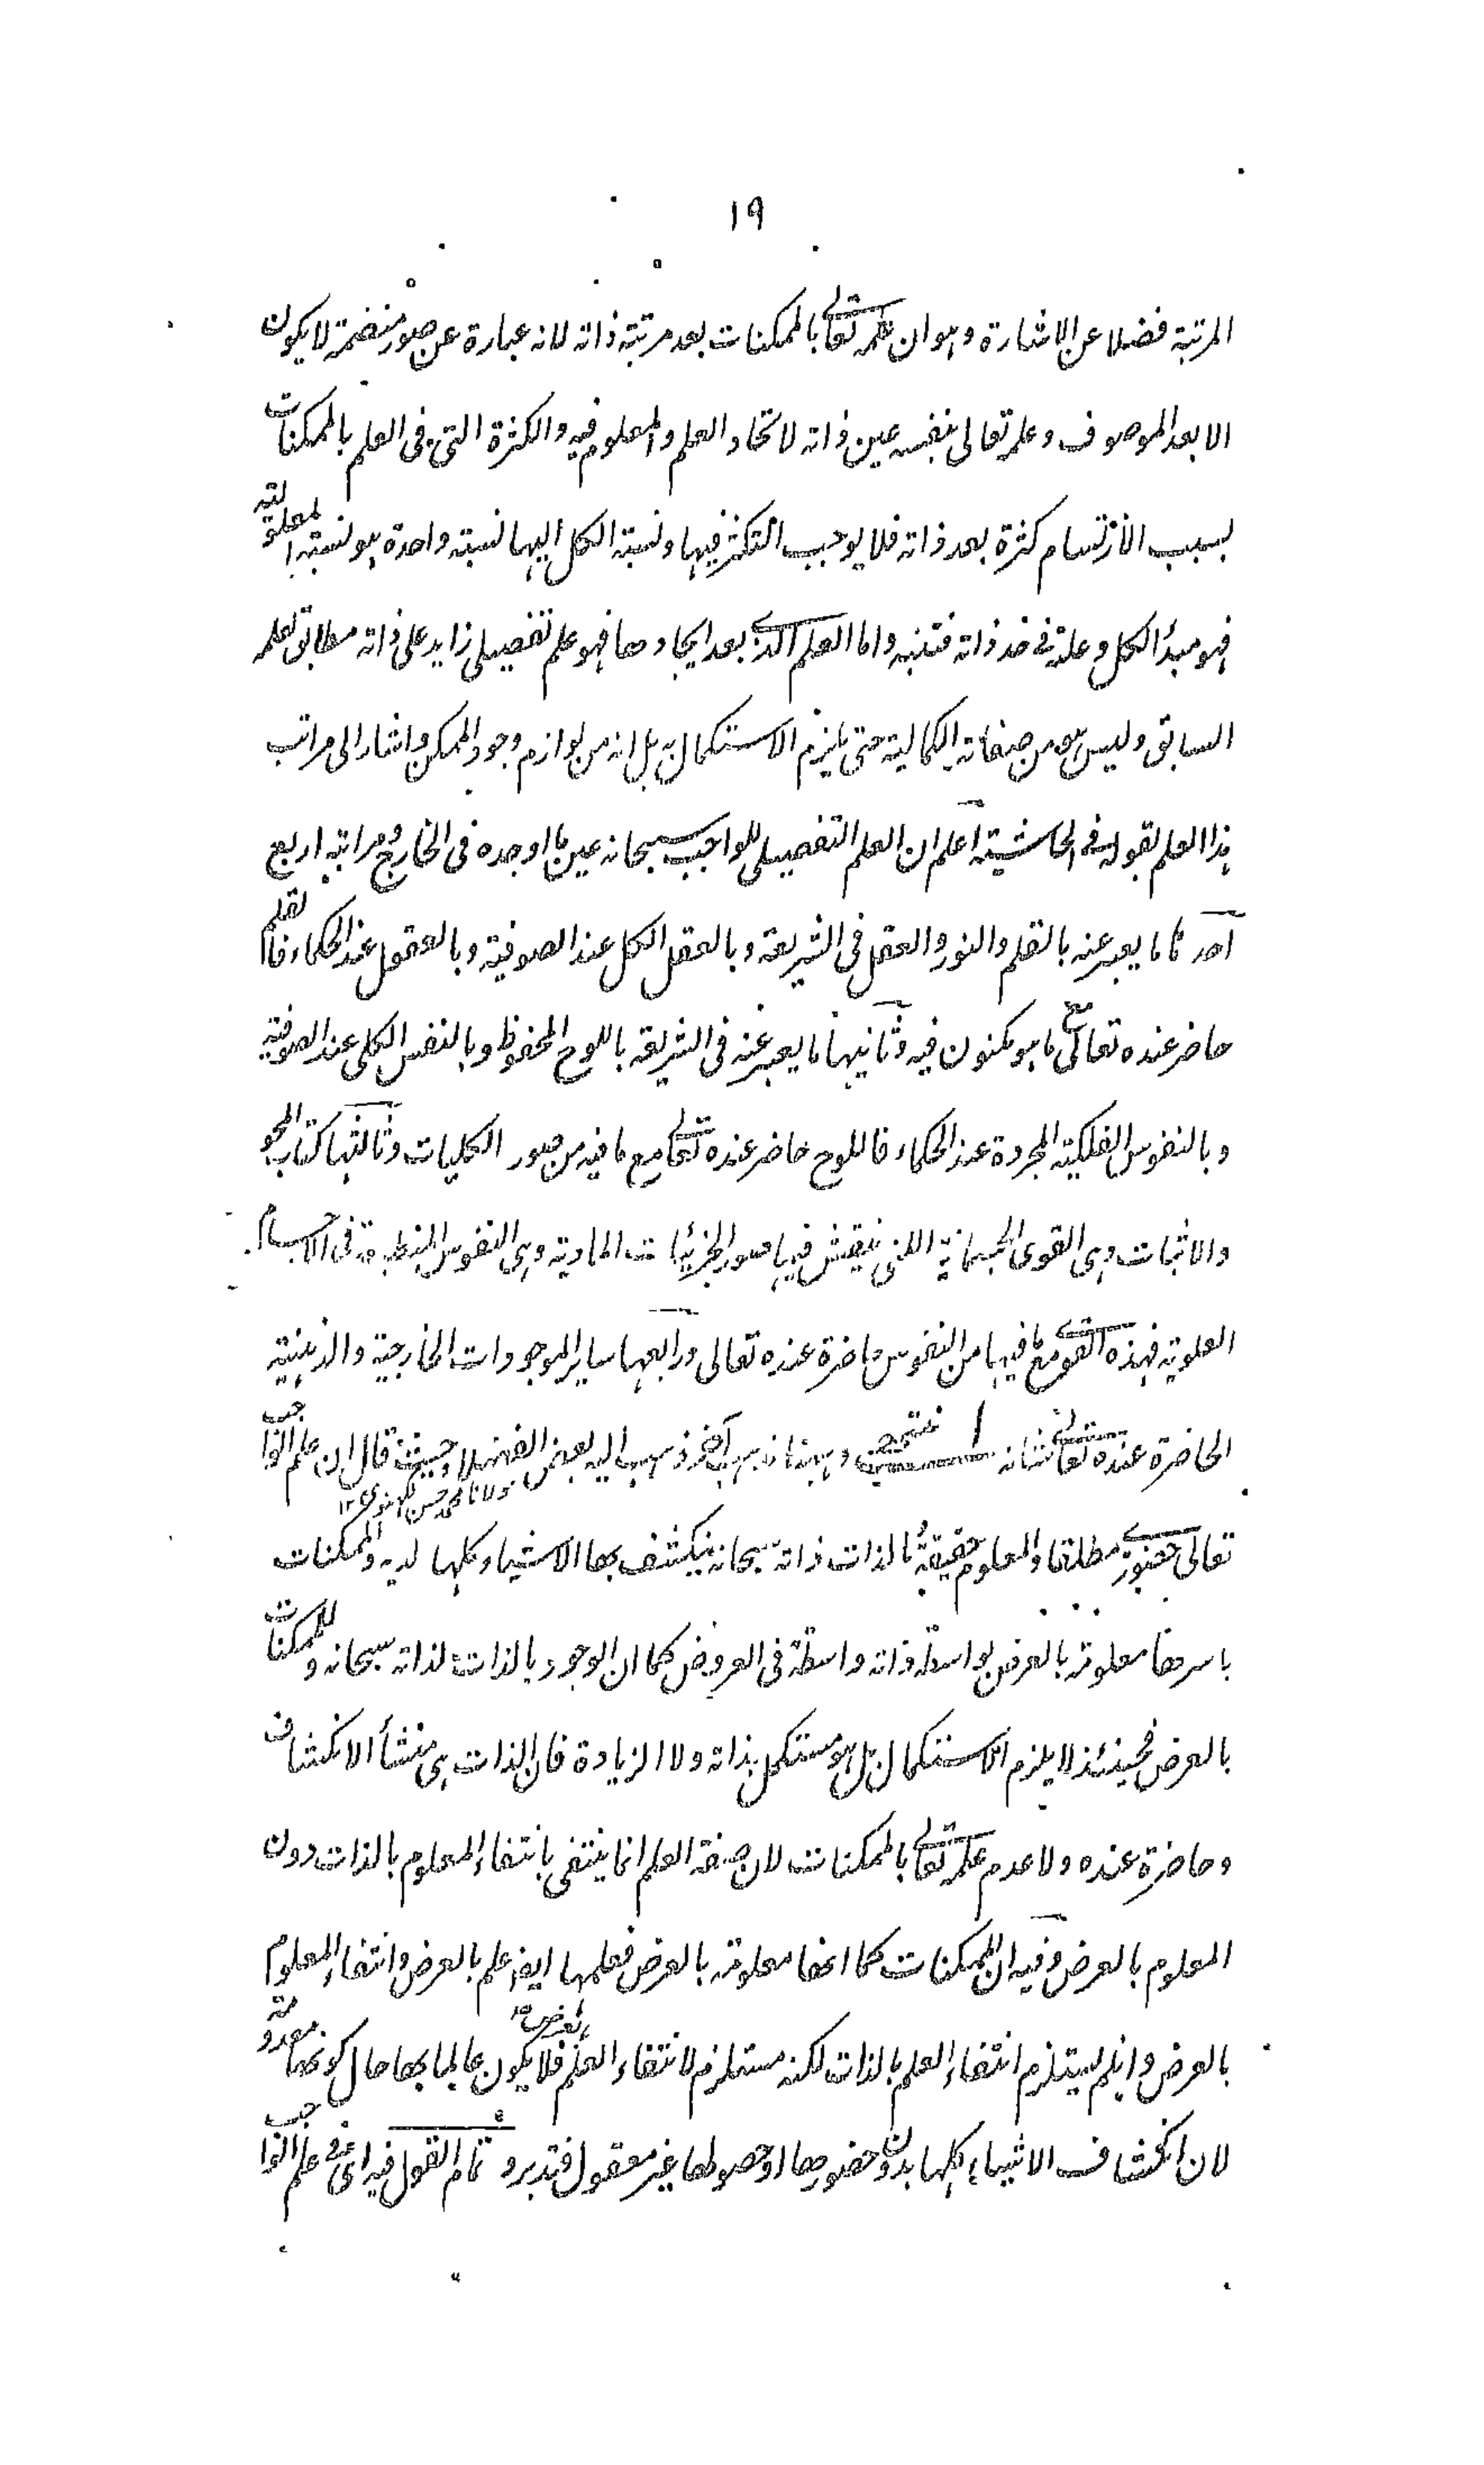 ١٩
المرتبة فضلا عن الاشارة وهو ان علمه تعالى بالممكنات بعد مرتبة ذاته لانه عبارة عن صور منضمة لا يكون
الا بعد الموصوف وعلمه تعالى بنفسه عين ذاته لاتحاد العلم والمعلوم فيه والكثرة التي في العلم بالممكنات
بسبب الارتسام كثرة بعد ذاته فلا يوجب التكثر فيها ونسبة الكل اليها نسبة واحدة هو نسبة المعلولية
فهو مبدأ الكل وعلة في حد ذاته فتنبه واما العلم الذي بعد ايجادها فهو علم تفصيلي زايد على ذاته مطابق لعلمه
السابق وليس هو من صفاته الكمالية حتى يلزم الاستكمال به بل انه من لوازم وجود الممكن واشار الى مراتب
هذا العلم بقوله في الحاشية اعلم ان العلم التفصيلي للواجب سبحانه عين ما اوجده في الخارج ومراتبه اربع
احدها ما يعبر عنه بالقلم والنور والعقل في الشريعة وبالعقل الكل عند الصوفية وبالعقول عند الحكماء فالقلم
حاضر عنده تعالى مع ما هو مكنون فيه وثانيها ما يعبر عنه في الشريعة باللوح المحفوظ وبالنفس الكلى عند الصوفية
وبالنفوس الفلكية المجردة عند الحكماء فاللوح حاضر عنده تعالى مع ما فيه من صور الكليات وثالثها كتاب المحو
والاثبات وهى القوى الجسمانية التي ينتقش فيها صور الجزئيات المادية وهى النفوس المنطبعة في الاجسام
العلوية فهذه القوى مع ما فيها من النفوس حاضرة عنده تعالى ورابعها ساير الموجودات الخارجية والذهنية
الحاضرة عنده تعالى شانه انتهى وههنا مذهب آخر ذهب اليه بعض الفضلاء حيث قال ان علم الواجب
مولانا محمد حسن لكهنوى ١٢
تعالى حضوري مطلقا والمعلوم حقيقة بالذات ذاته سبحانه ينكشف بها الاشياء كلها لديه والممكنات
باسرها معلومة بالعرض بواسطة ذاته واسطة في العروض كما ان الوجود بالذات لذاته سبحانه وللممكنات
بالعرض فحينئذ لا يلزم الاستكمال بل هو مستكمل بذاته ولا الزيادة فان الذات هي منشأ الانكشاف
وحاضرة عنده ولا عدم علمه تعالى بالممكنات لان صفة العلم انما ينتفى بانتفاء المعلوم بالذات دون
المعلوم بالعرض وفيه ان الممكنات كما انها معلومة بالعرض فعلمها ايضا علم بالعرض وانتفاء المعلوم
بالعرض وان لم يستلزم انتفاء العلم بالذات لكنه مستلزم لانتفاء العلم بالعرض فلا يكون عالما بها حال كونها معدومة
لان انكشاف الاشياء كلها بدون حضورها او حصولها غير معقول فتدبر وتمام القول فيه اى في علم الواجب